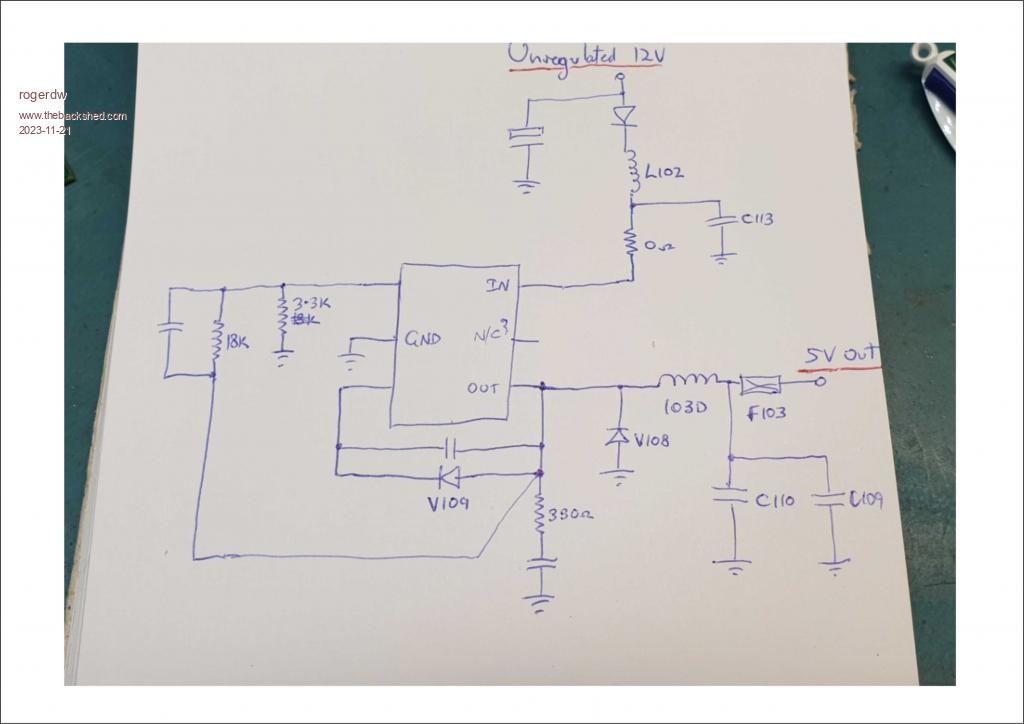 Unregulated 12V
rogerdw
www.thebackshed.com
2023-11-21
L102
C113
0Ω
IN
3.3K
18K
GND
N/C
OUT
5V Out
103D
F103
V108
V109
C110
C109